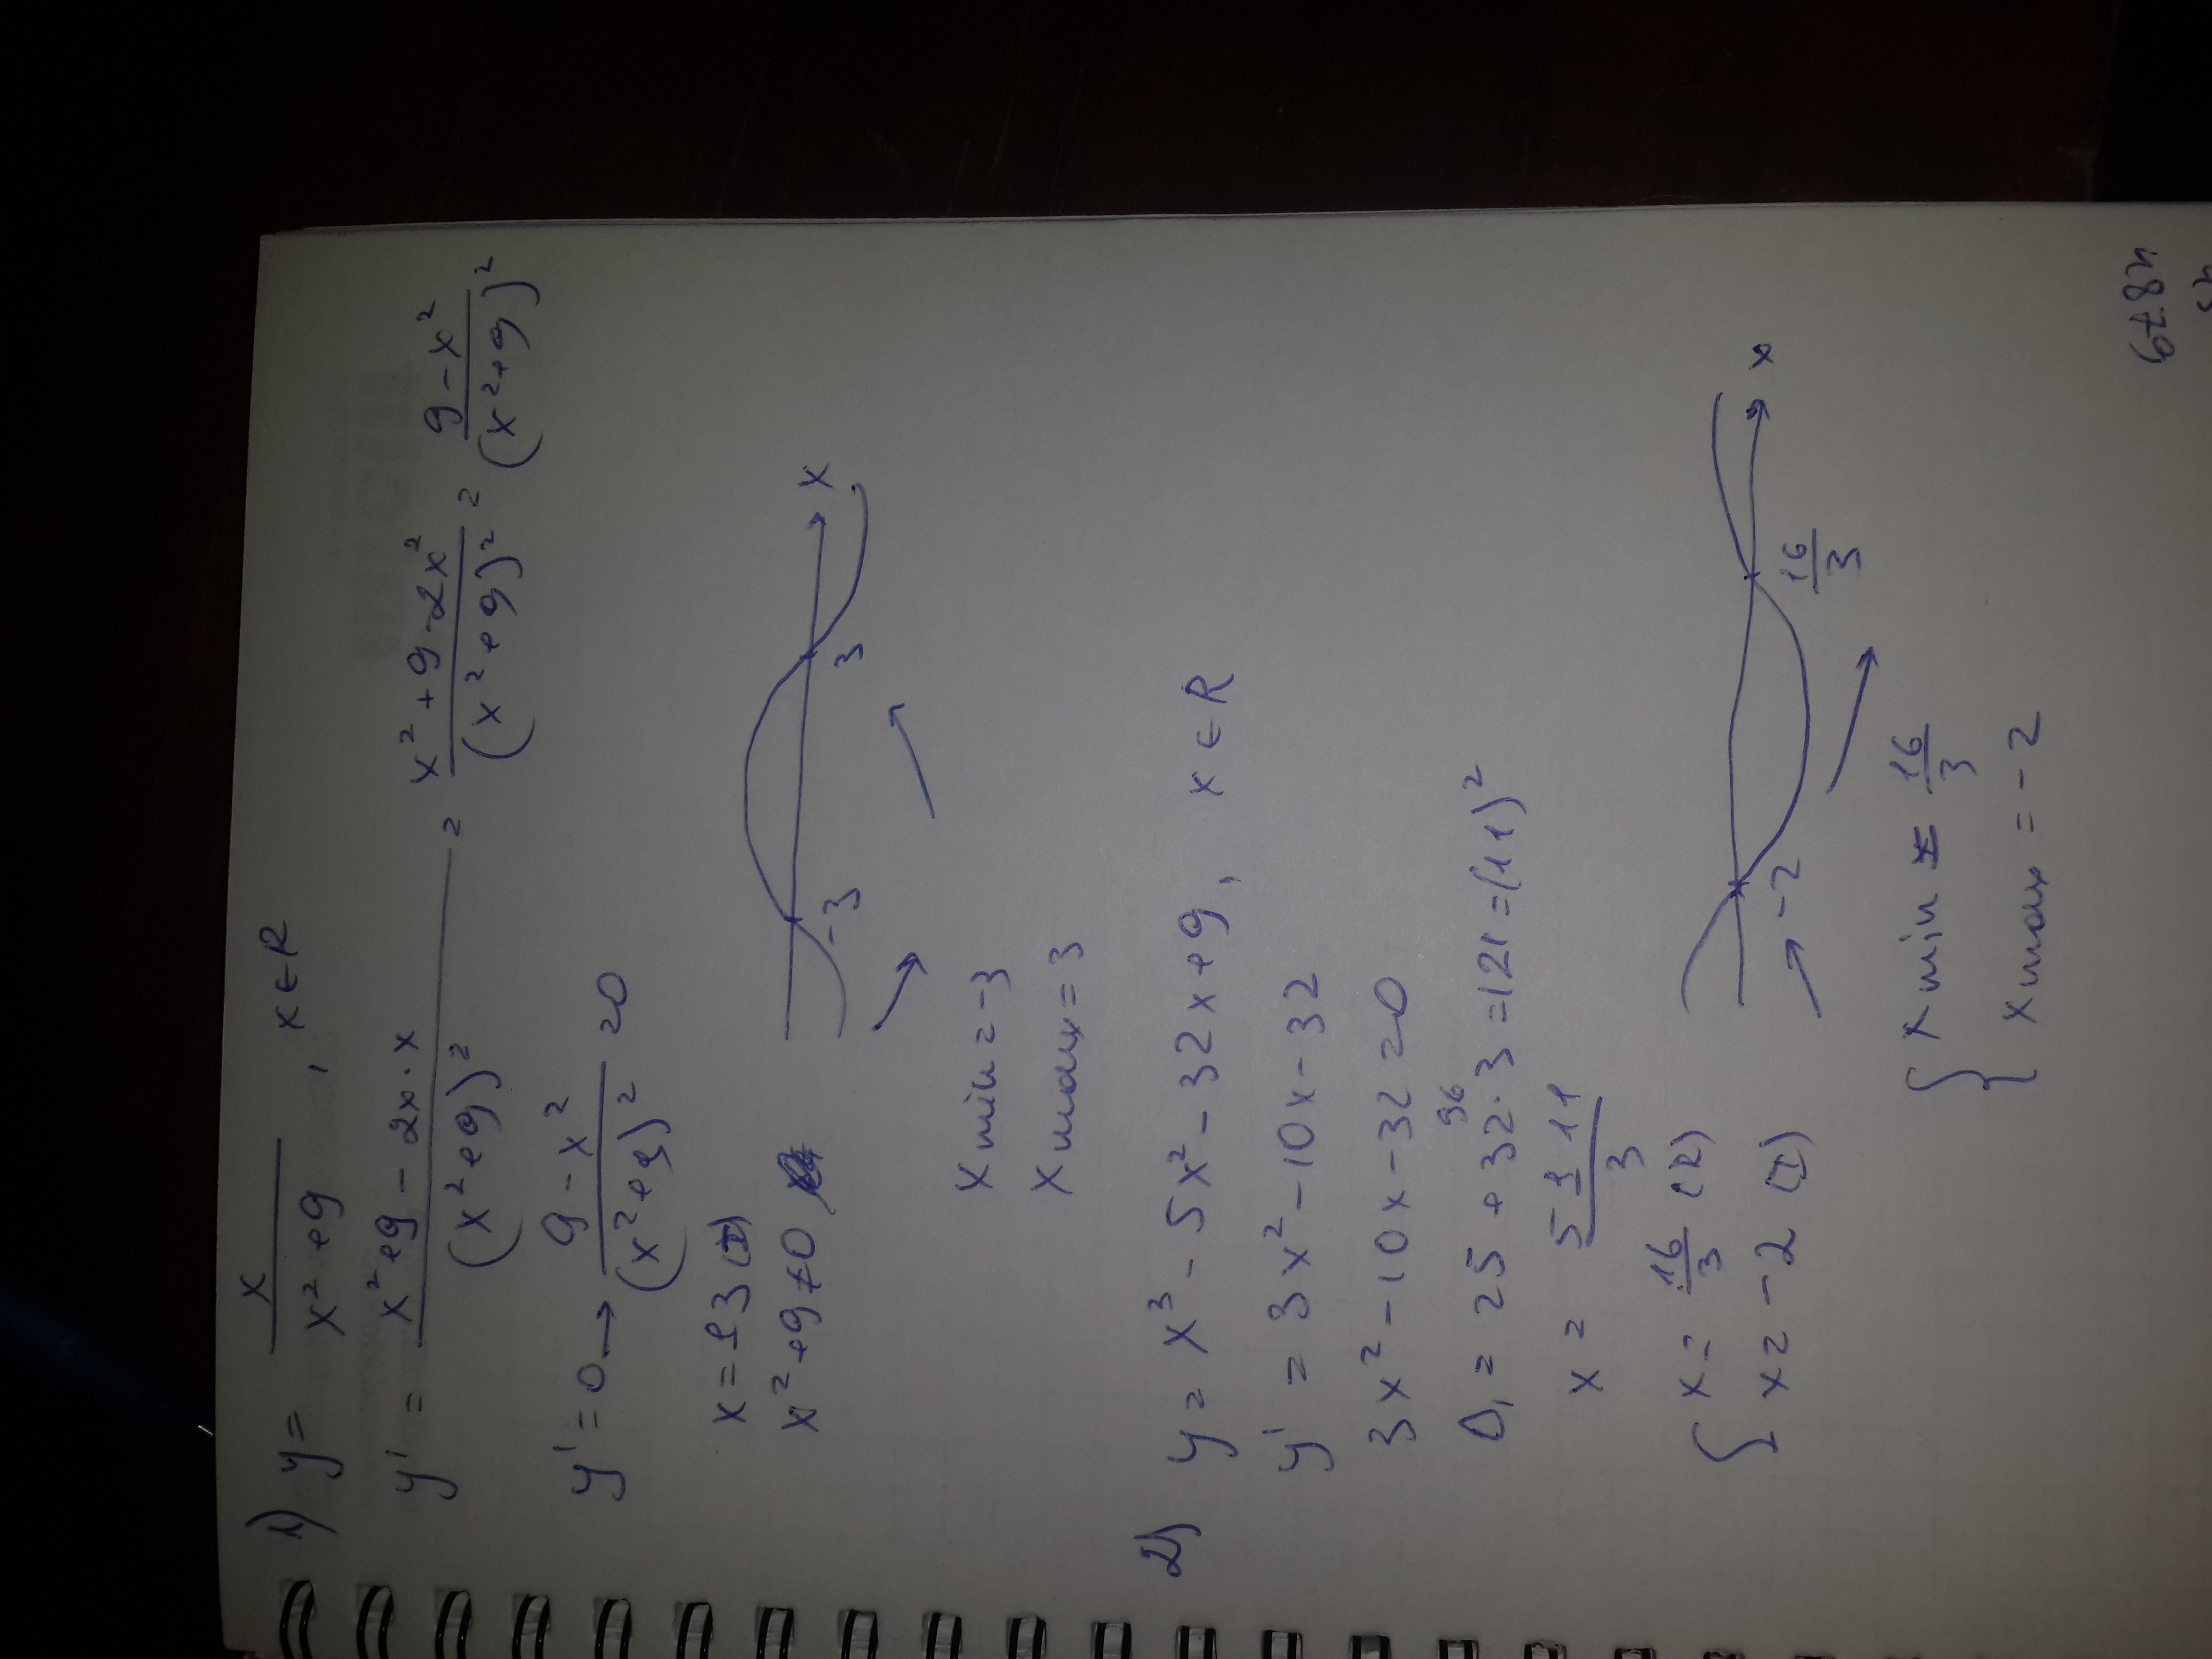 1) y = x / (x² + 9) , x ∈ R
y' = (x² + 9 - 2x · x) / (x² + 9)² = (x² + 9 - 2x²) / (x² + 9)² = (9 - x²) / (x² + 9)²
y' = 0 → (9 - x²) / (x² + 9)² = 0
x = ±3 (I)
x² + 9 ≠ 0
-3 3 x
xmin = -3
xmax = 3
2) y = x³ - 5x² - 32x + 9, x ∈ R
y' = 3x² - 10x - 32
3x² - 10x - 32 = 0
96
D₁ = 25 + 32 · 3 = 121 = (11)²
x = (5 ± 11) / 3
x = 16/3 (2)
x = -2 (I)
-2 16/3 x
xmin = 16/3
xmax = -2